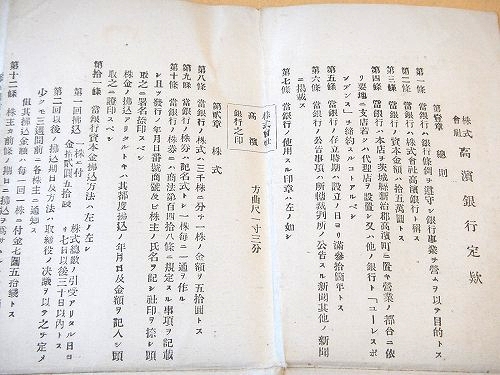 株式會社 高濱銀行定款
第壹章 總則
第一條 當銀行ハ銀行條例ヲ遵守シ銀行事業ヲ營ムヲ以テ目的トス
第二條 當銀行ハ株式會社高濱銀行ト稱ス
第三條 當銀行ノ資本金額ハ拾五萬圓トス
第四條 當銀行ハ本店ヲ茨城縣新治郡高濱町ニ置キ營業ノ都合ニ依
リ要地ニ支店若クハ代理店ヲ設置シ又ハ他ノ銀行ト「コーレスポ
ンデンス」ヲ締約スルコトアルベシ
第五條 當銀行ノ存立時期ハ設立ノ日ヨリ滿參拾箇年トス
第六條 當銀行ノ公告事項ハ所轄裁判所ノ公告スル新聞其他ノ新聞
ニ掲載ス
第七條 當銀行ノ使用スル印章ハ左ノ如シ
株式會社
高濱
銀行之印
方曲尺一寸三分
第貳章 株式
第八條 當銀行ノ株式ハ三千株ニ分チ一株ノ金額ヲ五拾圓トス
第九條 當銀行ノ株券ハ記名式トシ一株每ニ一通ヲ作ル
第十條 當銀行ノ株券ニハ商法第百四拾八條ニ規定スル事項ヲ記載
シ且ツ發行ノ年月日番號商號及ビ株主ノ氏名ヲ記シ社印ヲ捺シ頭
取之ニ署名捺印スベシ
株金ノ拂込アリタルトキハ其都度拂込ノ年月日及金額ヲ記入シ頭
取之ニ證印スベシ
第拾一條 當銀行資本金拂込方法ハ左ノ如シ
第一回拂込 一株ニ付 金拾貳圓五拾錢
株式總數ノ引受アリタル日ヨリ
七日以後三十日以內トス
第二回以後ノ拂込期日及方法ハ取締役ノ決議ヲ以テ之ヲ定メ
少クモ三週間前ニ各株主ニ通知ス
但其拂込金額ハ每一回一株ニ付金七圓五拾錢トス
第十二條 株主カ前條ノ期日ニ拂込ヲ